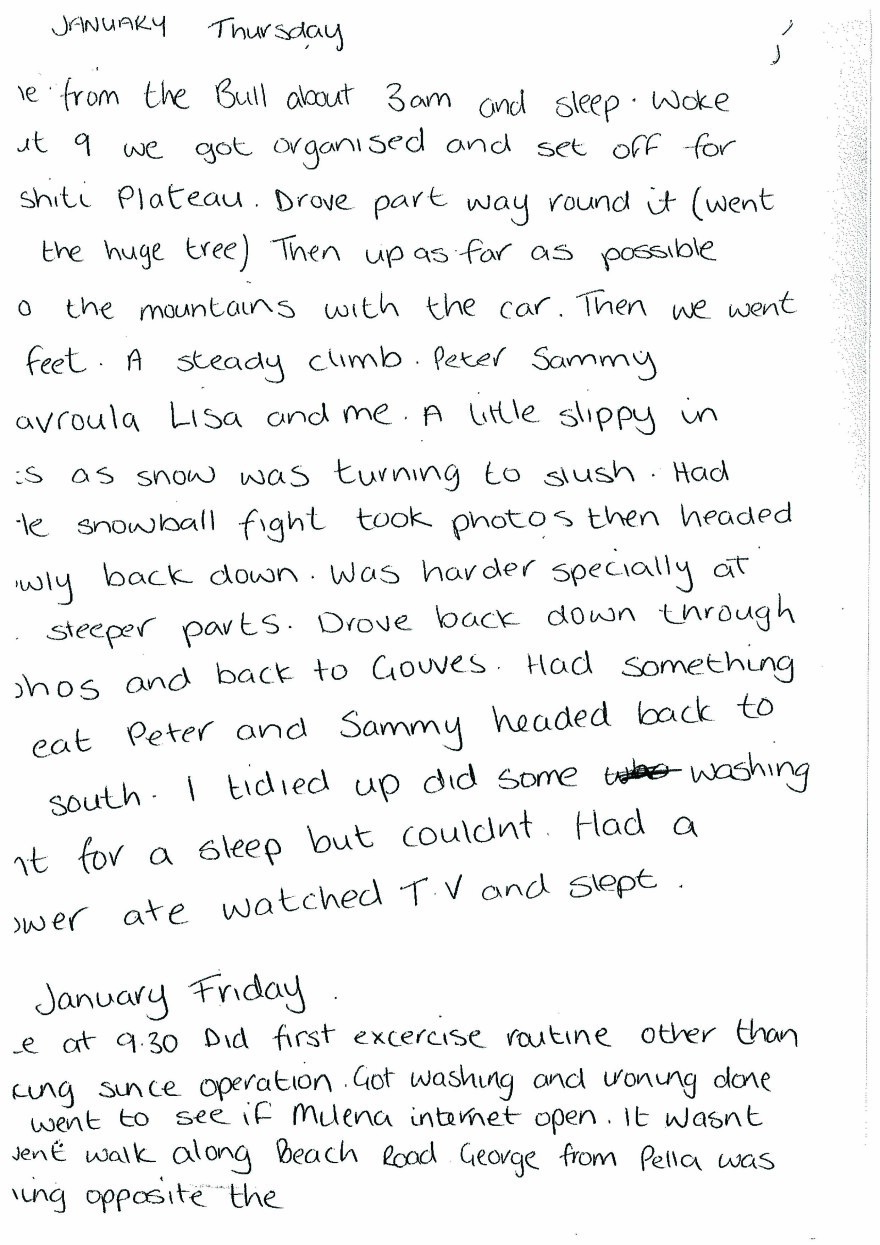 JANUARY Thursday
e from the Bull about 3am and sleep. Woke
ut 9 we got organised and set off for
shiti Plateau. Drove part way round it (went
the huge tree) Then up as far as possible
o the mountains with the car. Then we went
feet. A steady climb. Peter Sammy
avroula Lisa and me. A little slippy in
s as snow was turning to slush. Had
le snowball fight took photos then headed
wly back down. Was harder specially at
steeper parts. Drove back down through
hos and back to Gouves. Had something
eat Peter and Sammy headed back to
south. I tidied up did some washing
nt for a sleep but couldnt. Had a
ower ate watched T.V and slept.
January Friday.
e at 9.30 Did first excercise routine other than
king since operation. Got washing and ironing done
went to see if Milena internet open. It wasnt
went walk along Beach Road George from Pella was
ing opposite the